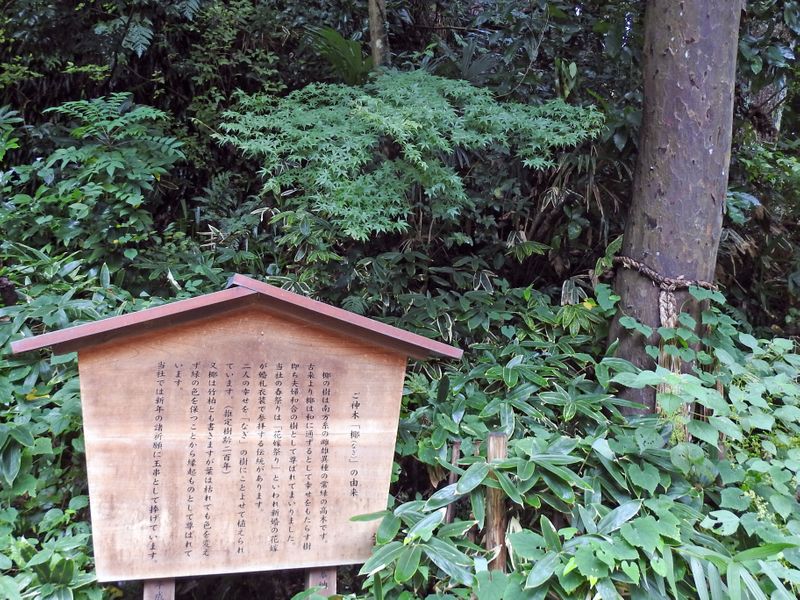 ご神木「梛(なぎ)」の由来
梛の樹は南方系の雌雄異種の常緑の高木です。
古来より梛は和に通ずるとして幸せをもたらす樹
即ち夫婦和合の樹として尊ばれてまいりました。
当社の春祭りは「花嫁祭り」といわれ新婚の花嫁
が婚礼衣装で参拝する伝統があります。
二人の幸せを「なぎ」の樹にことよせて植えられ
ています。(推定樹齢二百年)
又梛は竹柏とも書きますが葉は枯れても色を変え
ず緑の色を保つことから縁起ものとして尊ばれて
います。
当社では新年の諸祈願に玉串として捧げています。